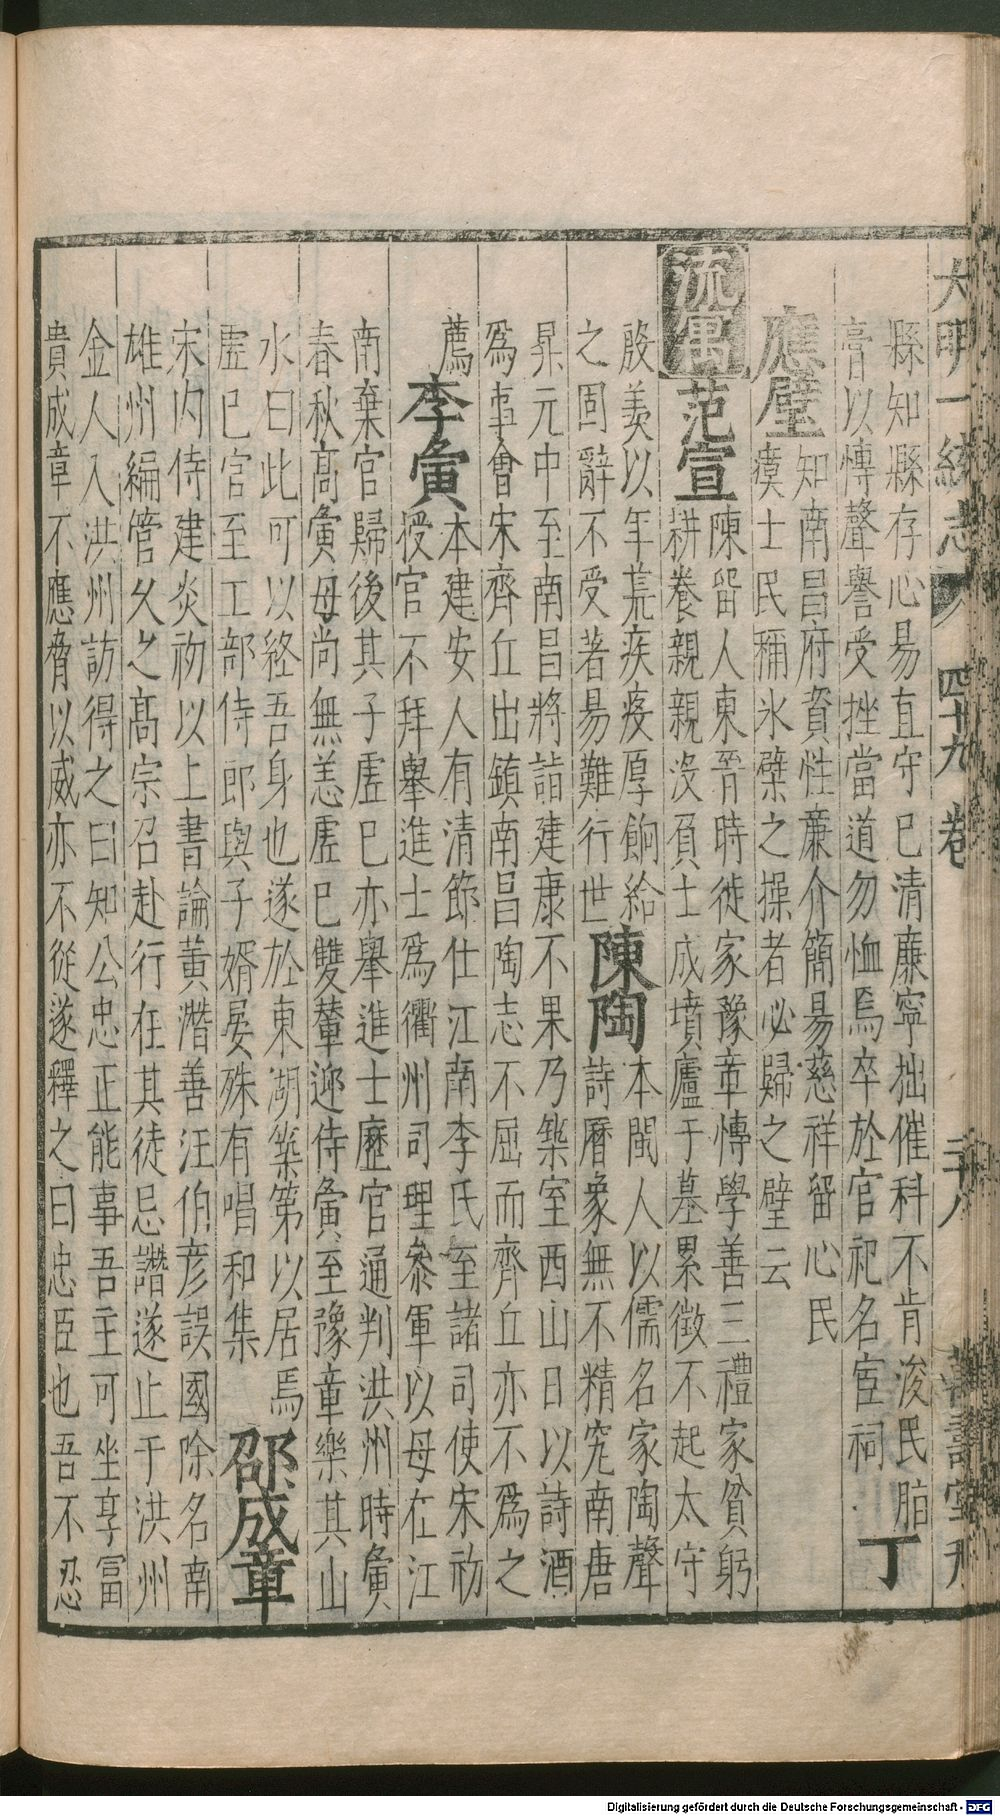 大明一統志 四十九卷 二十八 萬壽堂刊
縣知縣存心易直守巳清廉寧拙催科不肯浚民脂
膏以慱聲譽受挫當道勿恤焉卒於官祀名宦祠 丁
應璧 知南昌府資性廉介簡易慈祥留心民
瘼士民稱氷檗之操者必歸之璧云
流寓 范宣 陳留人東晉時徙家豫章慱學善三禮家貧躬
耕養親親沒負土成墳廬于墓累徵不起太守
殷羨以年荒疾疫厚餉給
之固辭不受著易難行世 陳陶 本閩人以儒名家陶聲
詩曆象無不精究南唐
昇元中至南昌將詣建康不果乃築室西山日以詩酒
爲事會宋齊丘出鎮南昌陶志不屈而齊丘亦不爲之
薦 李寅 本建安人有清節仕江南李氏至諸司使宋初
授官不拜舉進士爲衢州司理叅軍以母在江
南棄官歸後其子虛巳亦舉進士歷官通判洪州時寅
春秋高寅母尚無恙虛巳雙輦迎侍寅至豫章樂其山
水曰此可以終吾身也遂於東湖築第以居焉
虛巳官至工部侍郎與子婿晏殊有唱和集 邵成章
宋内侍建炎初以上書論黃潛善汪伯彥誤國除名南
雄州編管久之高宗召赴行在其徒忌譖遂止于洪州
金人入洪州訪得之曰知公忠正能事吾主可坐享富
貴成章不應脅以威亦不從遂釋之曰忠臣也吾不忍
Digitalisierung gefördert durch die Deutsche Forschungsgemeinschaft - DFG